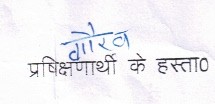 गौरव
प्रषिक्षणार्थी के हस्ता०